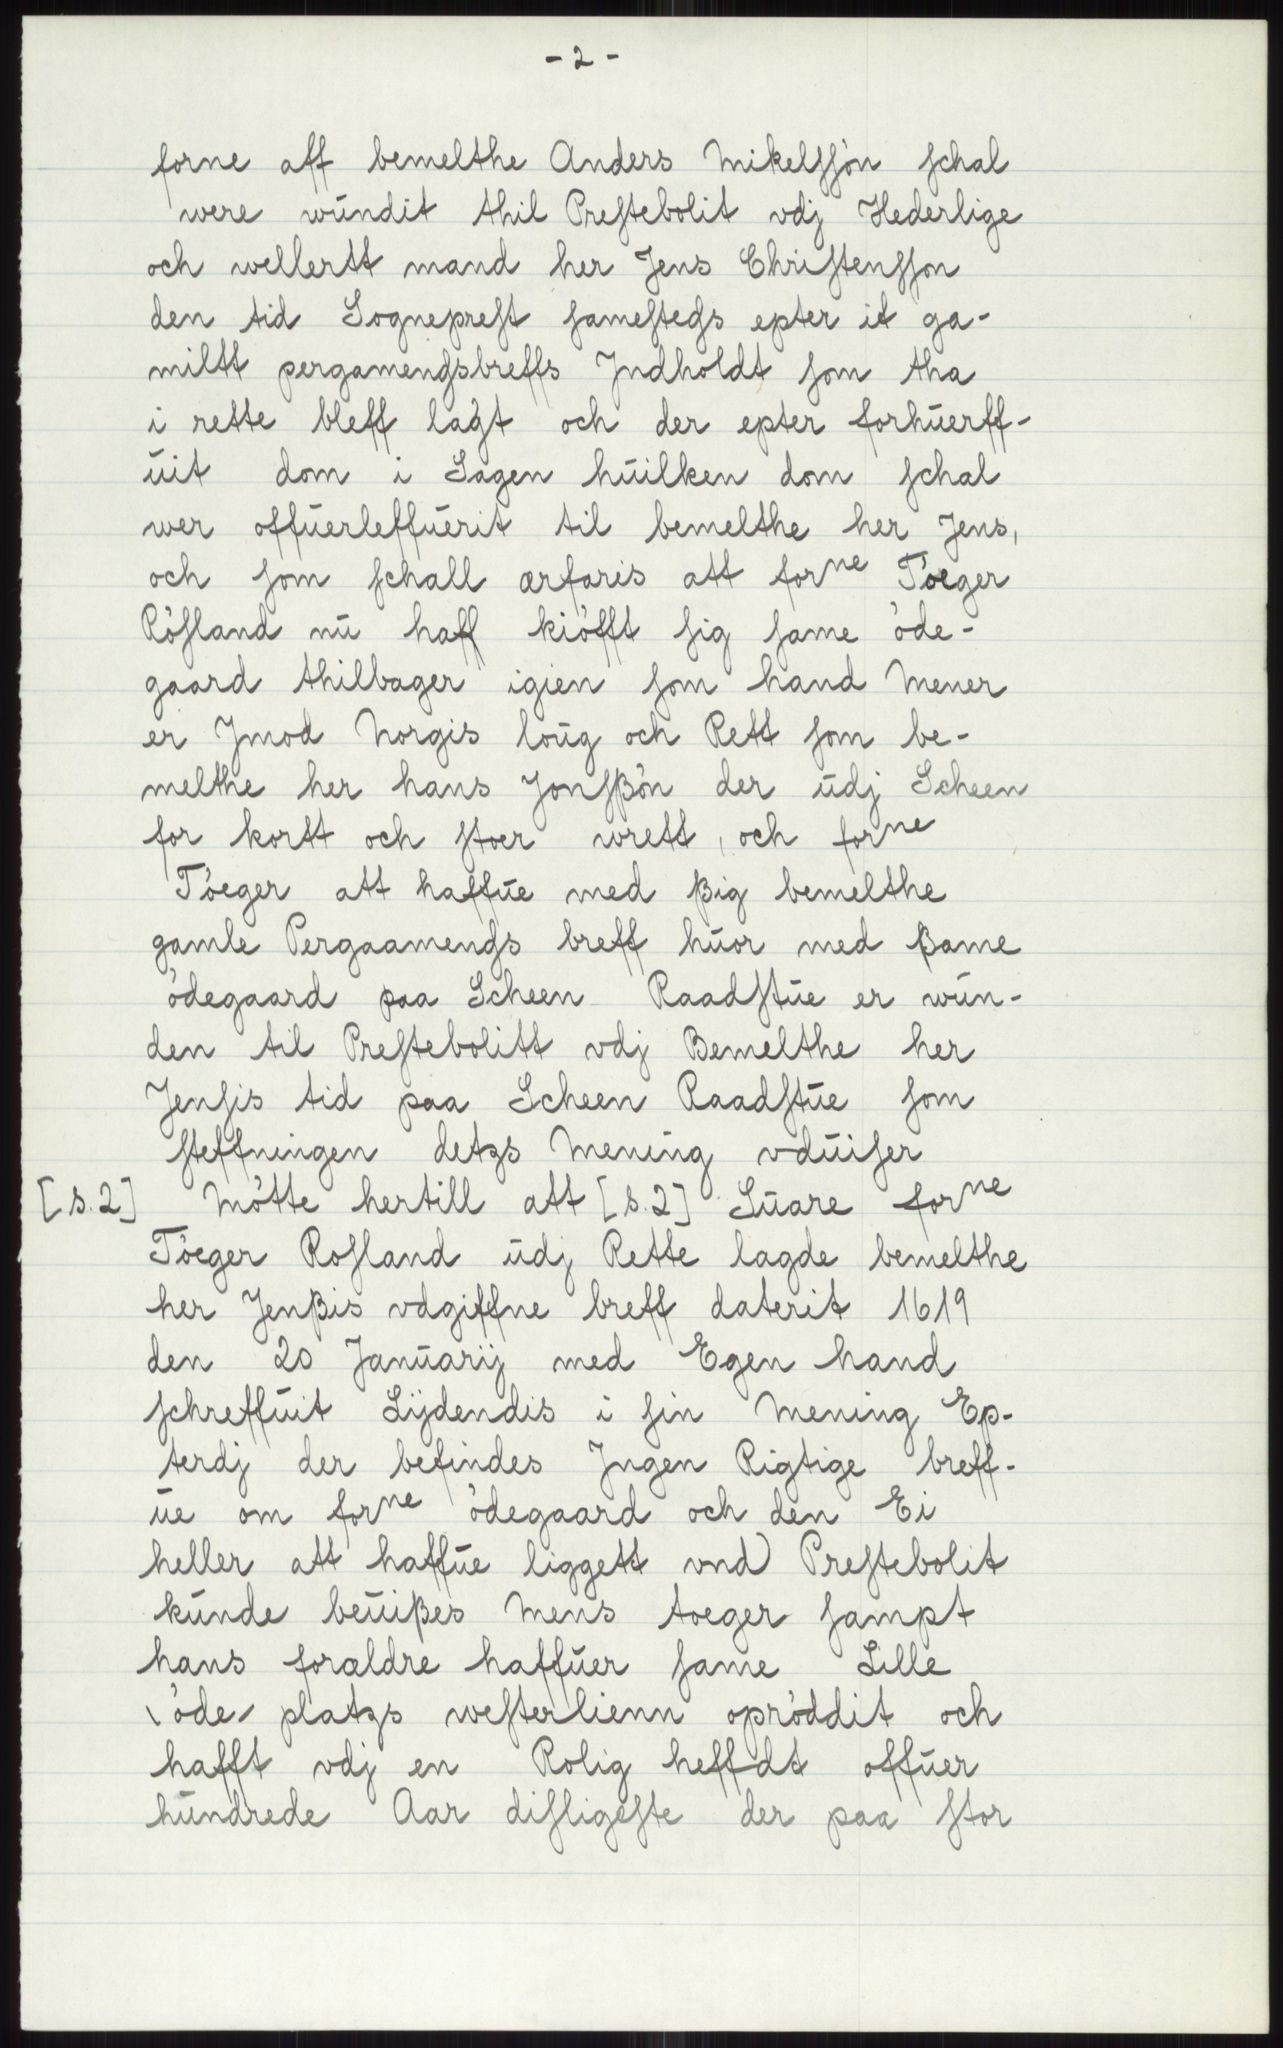 - 2 -
forne aff bemelthe Anders Mikelssøn schal
were wŭndit thil Prestebolit vdj Hederlige
och wellertt mand her Jens Christenssøn
den tid Sogneprest samestedss epter it ga-
miltt pergamendsbreffs Jndholdt som tha
i rette bleff lagt och der epter forhŭerff-
ŭit dom i Sagen hŭilken dom schal
wer offŭerleffŭerit til bemelthe her Jens,
och som schall ærfaris att forne Tøeger
Røsland nŭ haff kiøfft sig same øde-
gaard thilbager igien som hand Mener
er Jmod Norgis loŭg och Rett som be-
melthe her hans Jonsßøn der ŭdj Scheen
for kortt och stoer wrett, och forne
Tøeger att haffŭe med ßig bemelthe
gamle Pergaamends breff hŭor med ßame
ødegaard paa Scheen Raadstŭe er wŭn-
den til Prestebolitt vdj Bemelthe her
Jensis tid paa Scheen Raadstŭe som
steffningen detzs Mening vdŭiser
[s.2] Møtte hertill att [s.2] Sŭare forne
Tøeger Rosland ŭdj Rette lagde bemelthe
her Jenßis vdgiffne breff daterit 1619
den 20 Janŭarij med Egen hand
schreffŭit Lijdendis i sin Mening Ep-
terdj der befindes Jngen Rigtige breff-
ŭe om forne ødegaard och den Ei
heller att haffŭe liggett vnd Prestebolit
kŭnde beŭißes Mens toeger sampt
hans forældre haffŭer same Lille
øde platzs westerlienn oprøddit och
hafft vdj en Rolig heffdt offŭer
hŭndrede Aar disligeste der paa stor